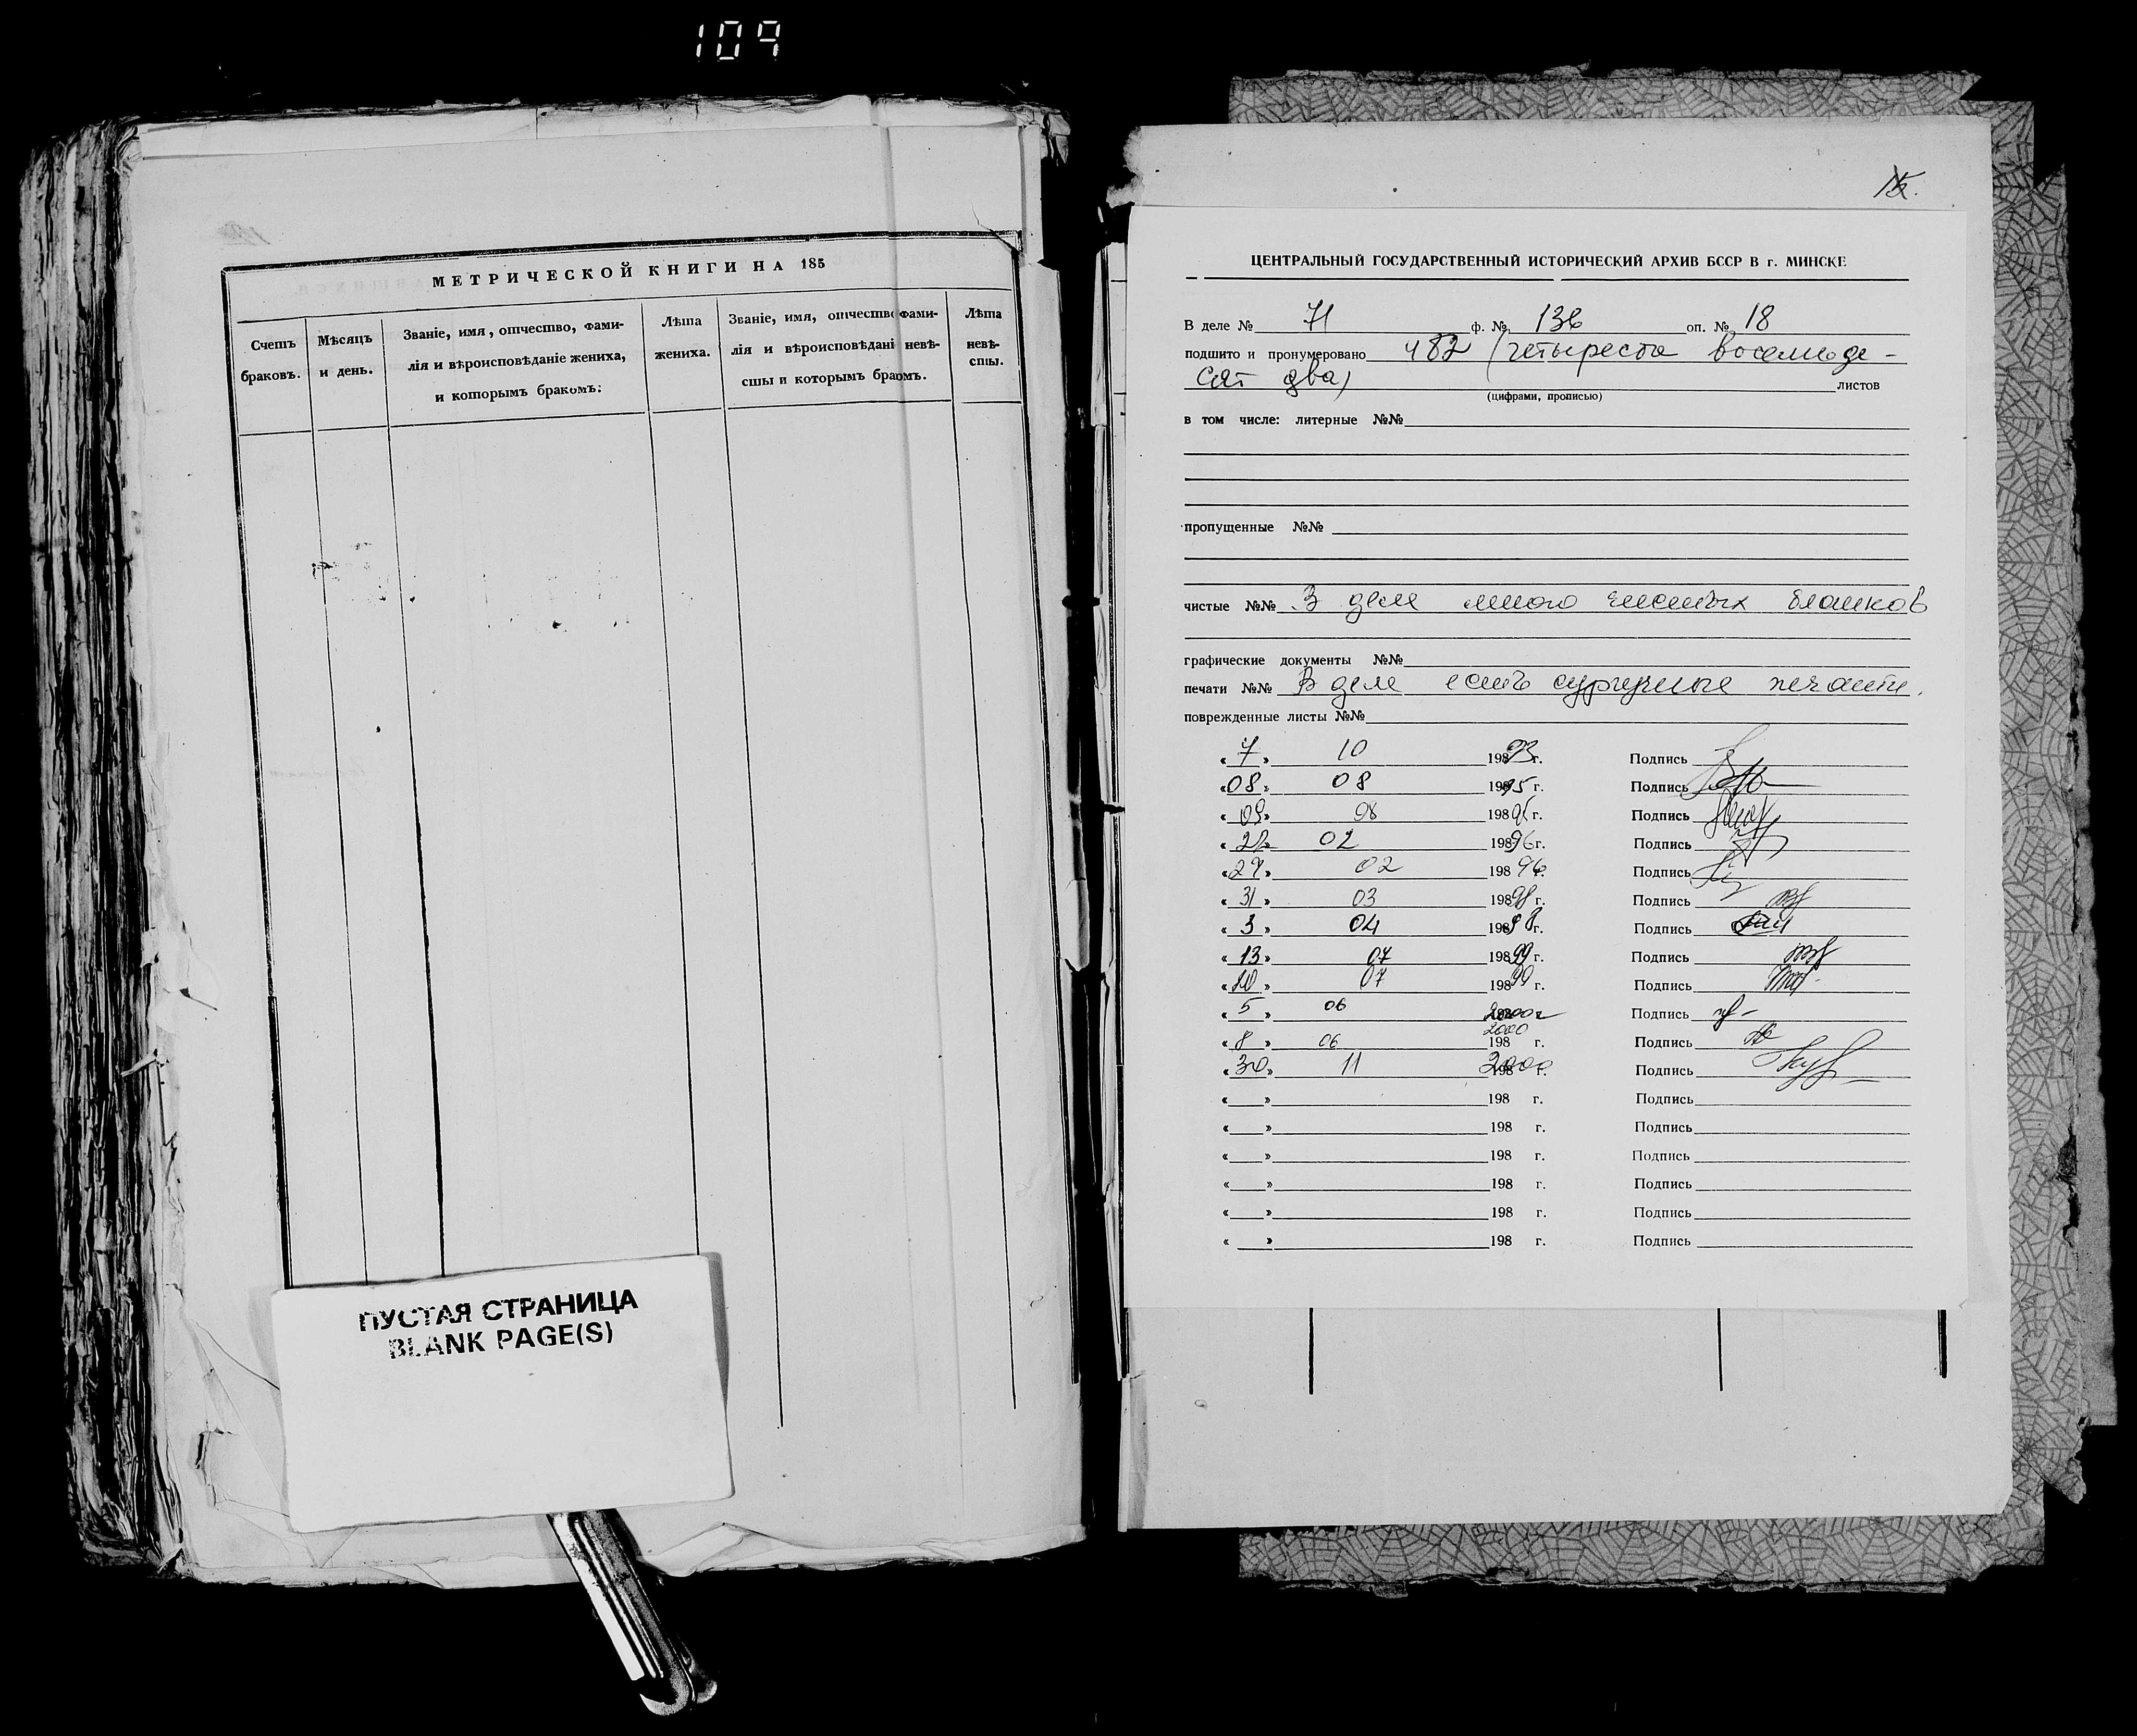 109
МЕТРИЧЕСКОЙ КНИГИ НА 185
Счетъ браковъ.
Мѣсяцъ и день.
Званіе, имя, отчество, фами-
лія и вѣроисповѣданіе жениха,
и которымъ бракомъ:
Лѣта жениха.
Званіе, имя, отчество фами-
лія и вѣроисповѣдані невѣ-
сты и которымъ бракомъ.
Лѣта невѣ-
сты.
ПУСТАЯ СТРАНИЦА
BLANK PAGE(S)
ЦЕНТРАЛЬНЫЙ ГОСУДАРСТВЕННЫЙ ИСТОРИЧЕСКИЙ АРХИВ БССР В г. МИНСКЕ
В деле № 71 ф. № 136 оп. № 18
подшито и пронумеровано 482 (четыреста восемьде-
сят два) листов
(цифрами, прописью)
в том числе: литерные №№
пропущенные №№
чистые №№ В деле много чистых бланков
графические документы №№
печати №№ В деле есть сургучные печати.
поврежденные листы №№
« 7 » 10 198 93 г. Подпись
« 08 » 08 198 95 г. Подпись
« 09 » 08 198 95 г. Подпись
« 22 » 02 198 96 г. Подпись
« 27 » 02 198 96 г. Подпись
« 31 » 03 198 98 г. Подпись
« 3 » 04 198 98 г. Подпись
« 13 » 07 198 99 г. Подпись
« 20 » 07 198 99 г. Подпись
« 5 » 06 2000 г Подпись
« 8 » 06 2000 198 г. Подпись
« 30 » 11 2000 198 г. Подпись
« » 198 г. Подпись
« » 198 г. Подпись
« » 198 г. Подпись
« » 198 г. Подпись
« » 198 г. Подпись
« » 198 г. Подпись